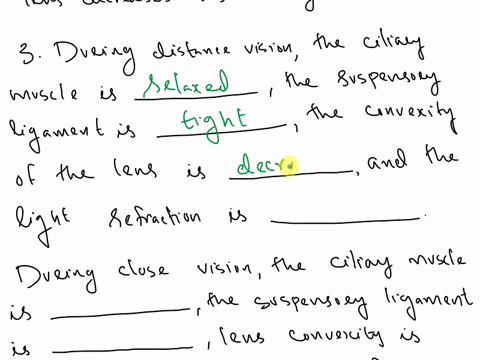 3. During distance vision, the ciliary
muscle is relaxed, the suspensory
ligament is tight, the convexity
of the lens is decr, and the
light refraction is ________.
During close vision, the ciliary muscle
is ________, the suspensory ligament
is ________, lens convexity is